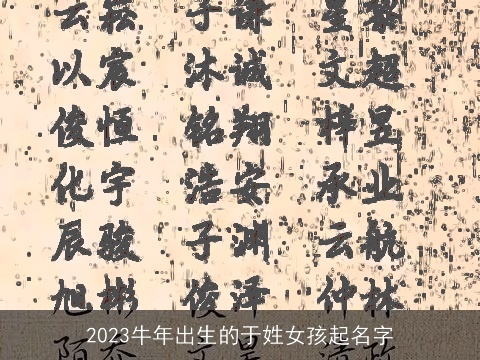 云崧 子謙 星黎
以宸 沐诚 文超
俊恒 铭翔 梓昱
化宇 浩安 承业
辰骏 子渊 云航
旭彬 俊泽 仲林
2023牛年出生的于姓女孩起名字